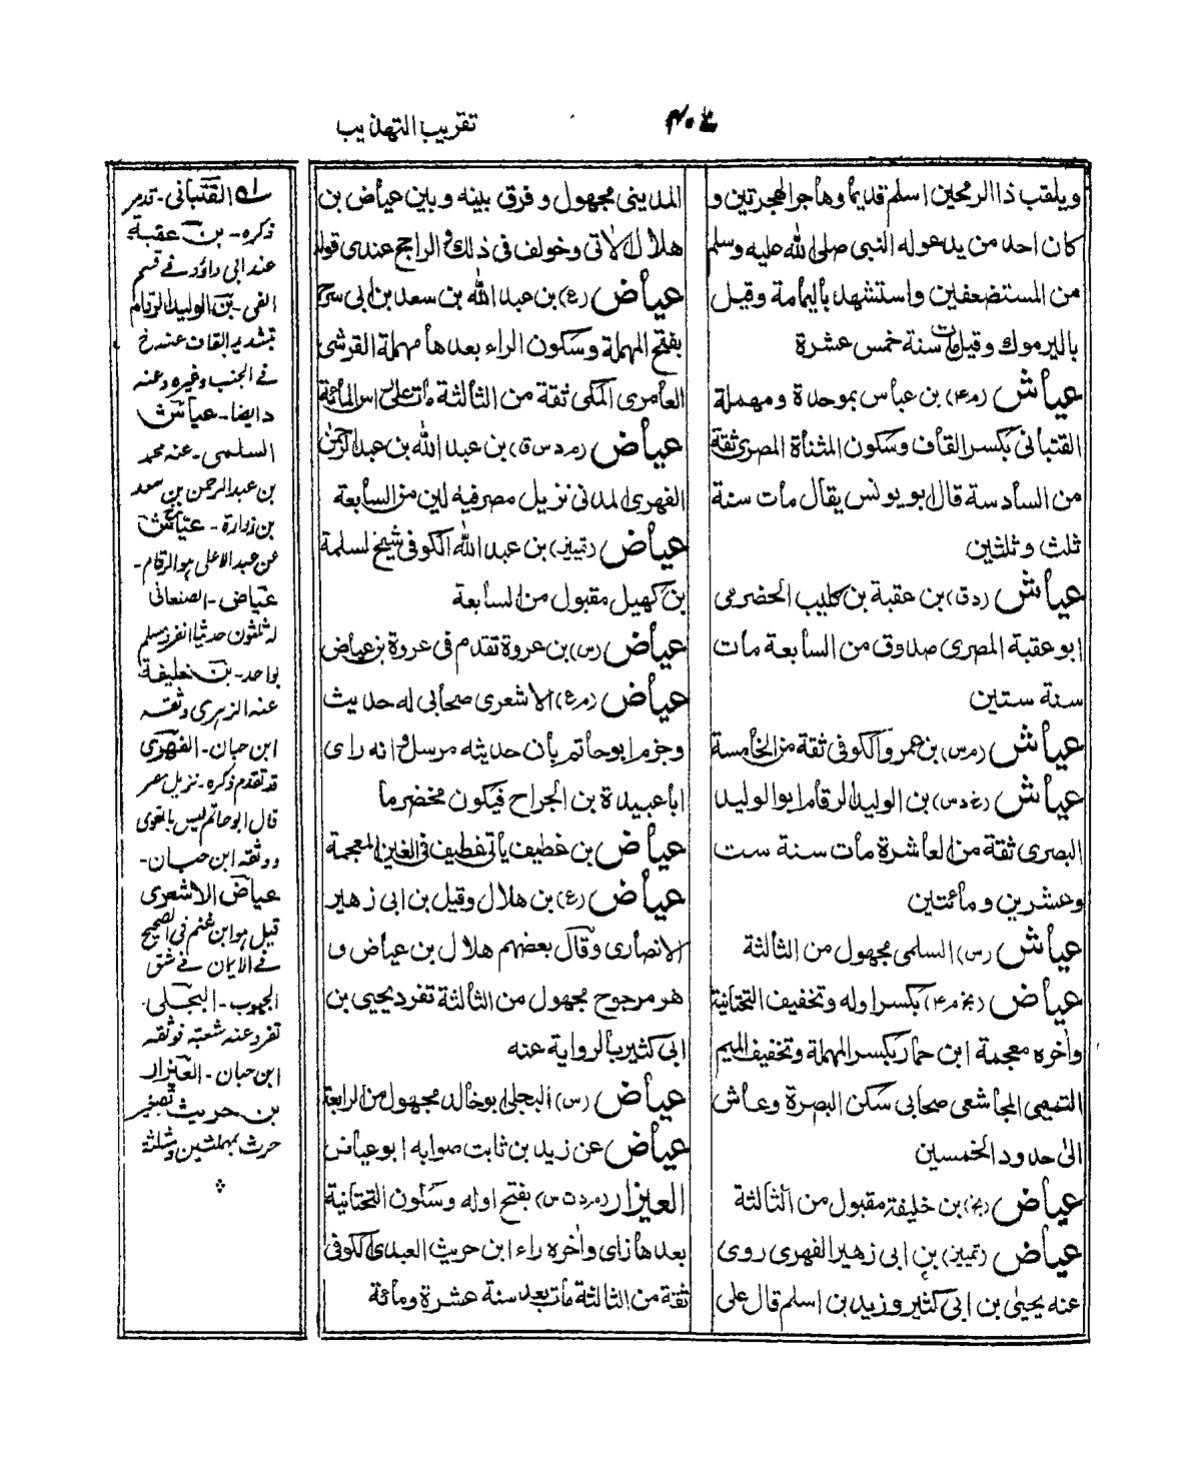 تقريب التهذيب
ويلقب ذا الرمحين اسلم قديما وهاجر الهجرتين و
كان احد من يدعو له النبي صلى الله عليه وسلم
من المستضعفين واستشهد باليمامة وقيل
باليرموك وقيل مات سنة خمس عشرة
عياش (م٤) بن عباس بموحدة ومهملة
القتباني بكسر القاف وسكون المثناة المصرى ثقة
من السادسة قال ابو يونس يقال مات سنة
ثلث وثلثين
عياش (دق) بن عقبة بن كليب الحضرمى
ابو عقبة المصرى صدوق من السابعة مات
سنة ستين
عياش (مس) بن عمرو الكوفى ثقة من الخامسة
عياش (خ د س) بن الوليد الرقام ابو الوليد
البصرى ثقة من العاشرة مات سنة ست
وعشرين ومائتين
عياش (س) السلمى مجهول من الثالثة
عياض (بخ م٤) بكسر اوله وتخفيف التحتانية
واخره معجمة ابن حمار بكسر المهملة وتخفيف الميم
التميمى المجاشعى صحابى سكن البصرة وعاش
الى حدود الخمسين
عياض (بخ) بن خليفة مقبول من الثالثة
عياض (تمييز) بن ابى زهير الفهرى روى
عنه يحيى بن ابى كثير وزيد بن اسلم قال على
المدينى مجهول وفرق بينه وبين عياض بن
هلال الاتى وخولف فى ذلك والراجح عندى قوله
عياض (ع) بن عبد الله بن سعد بن ابى سرح
بفتح المهملة وسكون الراء بعدها مهملة القرشى
العامرى المكى ثقة من الثالثة مات على راس المائة
عياض (م د س ق) بن عبد الله بن عبد الرحمن
الفهرى المدنى نزيل مصر فيه لين من السابعة
عياض (تمييز) بن عبد الله الكوفى شيخ لسلمة
بن كهيل مقبول من السابعة
عياض (س) بن عروة تقدم فى عروة بن عياض
عياض (م ع) الاشعرى صحابى له حديث
وجزم ابو حاتم بان حديثه مرسل وانه راى
ابا عبيدة بن الجراح فيكون مخضرما
عياض بن غطيف ياتى غطيف فى الغين المعجمة
عياض (ع) بن هلال وقيل بن ابى زهير
الانصارى وقال بعضهم هلال بن عياض و
هو مرجوح مجهول من الثالثة تفرد يحيى بن
ابى كثير بالرواية عنه
عياض (س) البجلى ابو خالد مجهول من الرابعة
عياض عن زيد بن ثابت صوابه ابو عياض
العيزار (م د ت س) بفتح اوله وسكون التحتانية
بعدها زاى واخره راء ابن حريث العبدى الكوفى
ثقة من الثالثة مات بعد سنة عشرة ومائة
القتبانى - تقدم
ذكره - بن عقبة
عند ابى داؤد فے قسم
الفى - بن الوليد الرقام
بتشديد القاف عنه خ
فے الجنب وغيره وعنه
د ايضا - عياش
السلمى - عنه محمد
بن عبد الرحمن بن سعد
بن زرارة - عياش
عن عبد الاعلى ہو الرقام -
عياض - الصنعانى
له ثلثون حديثا انفرد مسلم
بواحد - بن خليفة
عنه الزهرى وثقه
ابن حبان - الفهرى
قد تقدم ذكره - نزيل مصر
قال ابو حاتم ليس بالقوى
ووثقه ابن حبان -
عياض الاشعرى
قيل ہو ابن غنم فى الصحيح
فے الايمان فے شق
الجيوب - البجلى -
تفرد عنه شعبة فوثقه
ابن حبان - العيزار
بن حريث تصغير
حرث بمهملتين ومثلثة